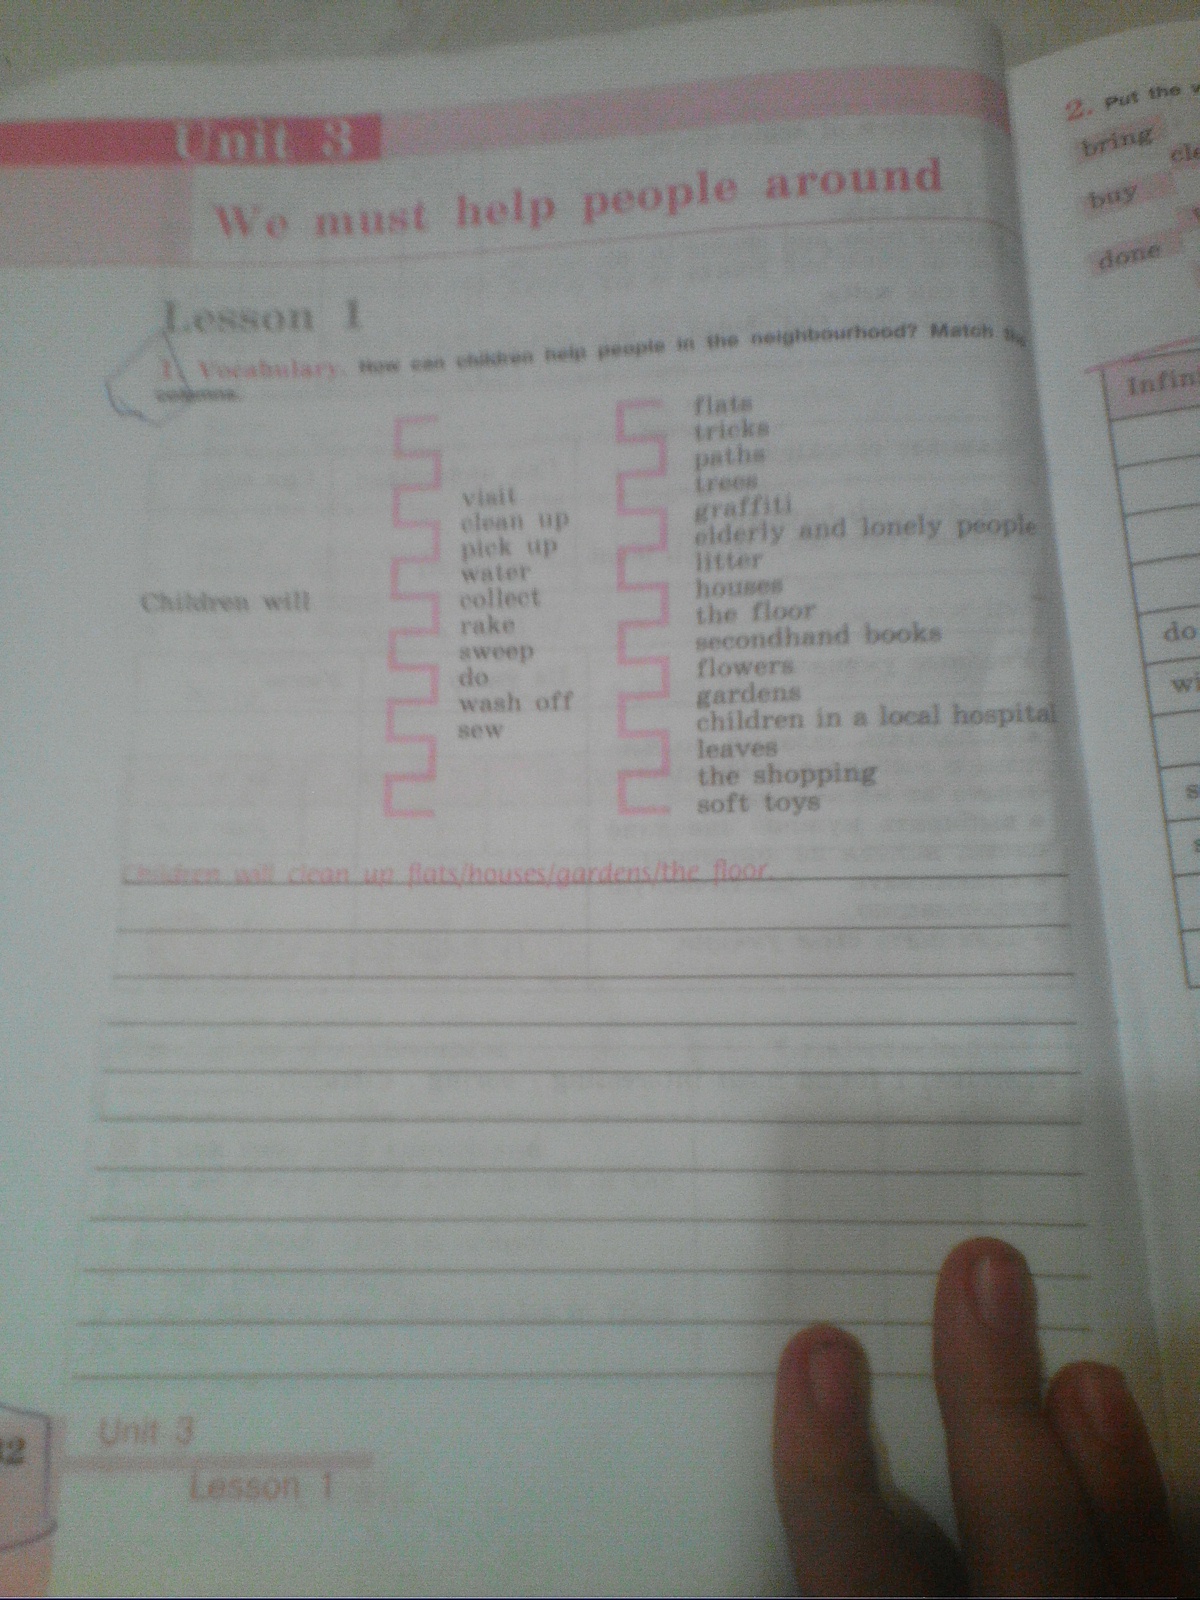 Unit 3
We must help people around
Lesson 1
1. Vocabulary. How can children help people in the neighbourhood? Match the
columns.
Children will
visit
clean up
pick up
water
collect
rake
sweep
do
wash off
sew
flats
tricks
paths
trees
graffiti
elderly and lonely people
litter
houses
the floor
secondhand books
flowers
gardens
children in a local hospital
leaves
the shopping
soft toys
Children will clean up flats/houses/gardens/the floor.
32
Unit 3
Lesson 1
2. Put the
bring
buy
done
do